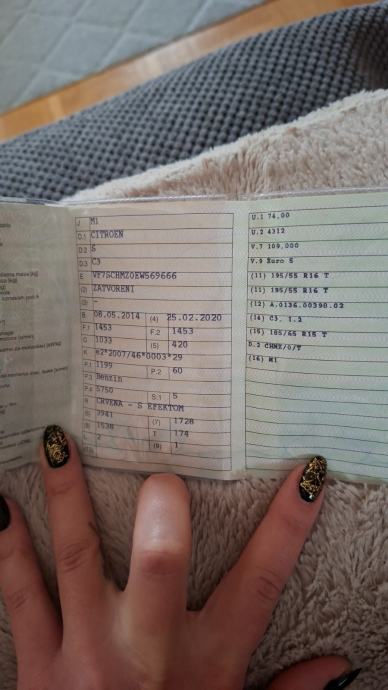 J M1
D.1 CITROEN
D.2 S
D.3 C3
E VF7SCHMZ0EW569666
(2) ZATVORENI
(3) -
B 08.05.2014 (4) 25.02.2020
F.1 1453 F.2 1453
G 1033 (5) 420
K e2*2007/46*0003*29
P.1 1199 P.2 60
P.3 Benzin
P.4 5750 S.1 5
R CRVENA - S EFEKTOM
(6) 3941 (7) 1728
(8) 1538 T 174
L 2 (9) 1
U.1 74,00
U.2 4312
V.7 109,000
V.9 Euro 5
(11) 195/55 R16 T
(11) 195/55 R16 T
(12) A.0136.00398.02
(14) C3, 1.2
(15) 185/65 R15 T
D.2 CHMZ/0/T
(16) M1